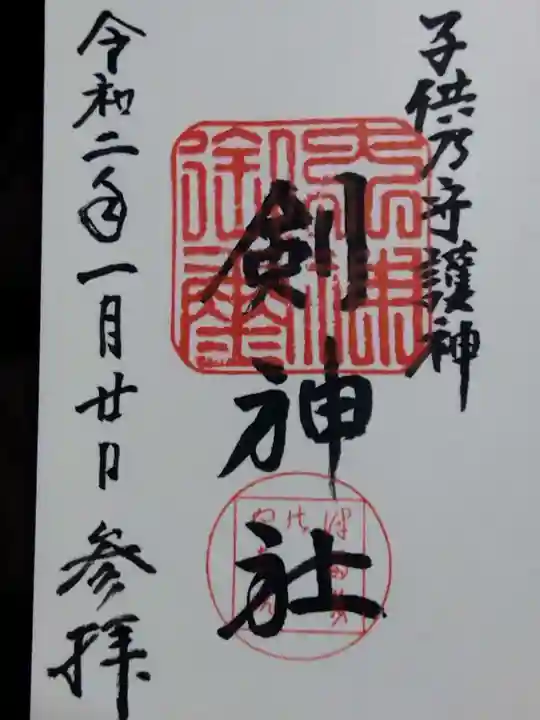 子供乃守護神
剣神社
令和二年一月廿日参拝